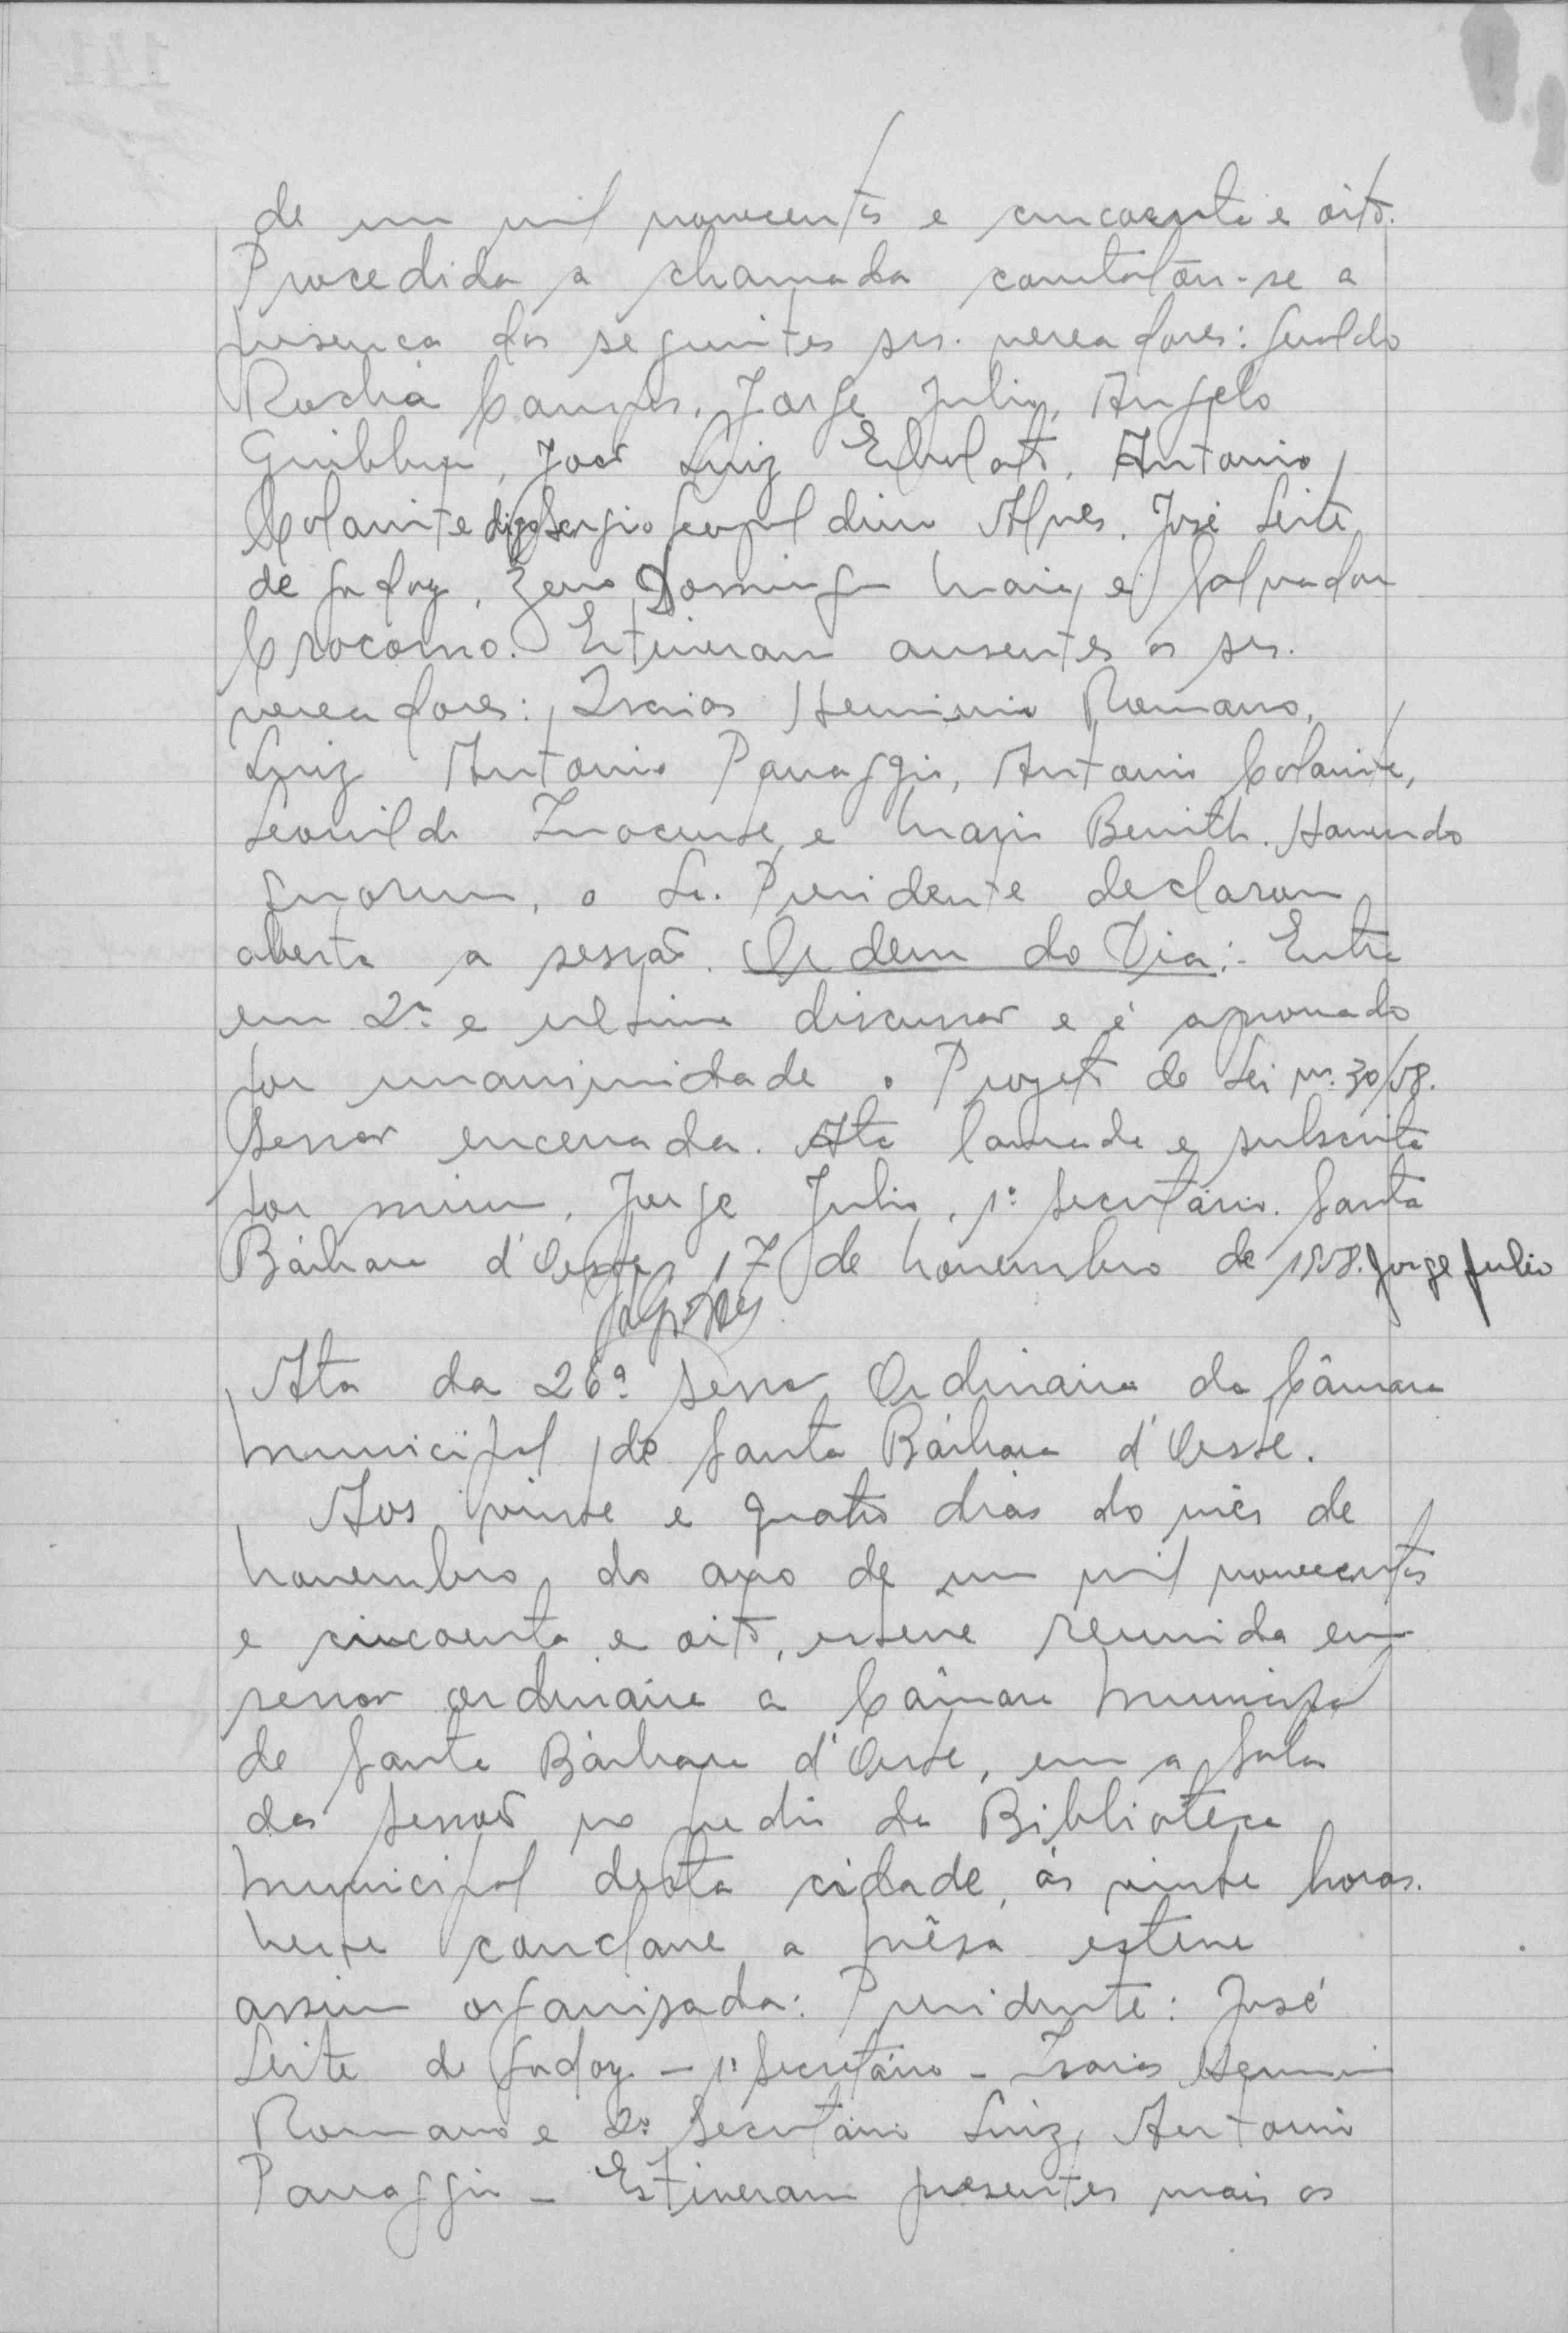 de um mil novecentos e cincoenta e oito.
Procedida a chamada constatou-se a
presença dos seguintes srs. vereadores: Geraldo
Rocha Campos, Jorge Julio, Angelo
Giubbina, José Luiz Ederlato, Antonio
Colanite digo Sergio Leopoldino Alves, José Leite
de Godoy, Zeno Domingos Maia, e Salvador
Crocomo. Estiveram ausentes os srs.
vereadores: Isaias Herminio Romano,
Luiz Antonio Panaggio, Antonio Colanite,
Leonildo Inocente, e Mario Benith. Havendo
quorum, o Sr. Presidente declarou
aberta a sessão. Ordem do Dia:- Entra
em 2ª e ultima discussão e é aprovado
por unanimidade o Projeto de Lei nº 30/58.
Sessão encerrada. Ata lavrada e subscrita
por mim, Jorge Julio, 1º Secretário. Santa
Bárbara d'Oeste, 17 de Novembro de 1958. Jorge Julio
Ata da 26ª Sessão Ordinária da Câmara
Municipal de Santa Bárbara d'Oeste.
Aos vinte e quatro dias do mês de
Novembro do ano de um mil novecentos
e cincoenta e oito, esteve reunida em
sessão ordinária a Câmara Municipal
de Santa Bárbara d'Oeste, em a Sala
das Sessões no predio da Biblioteca
Municipal desta cidade, às vinte horas.
Neste conclave a mêsa esteve
assim organisada: Presidente: José
Leite de Godoy - 1º Secretário - Isaias Herminio
Romano e 2º Secretário Luiz Antonio
Panaggio - Estiveram presentes mais os